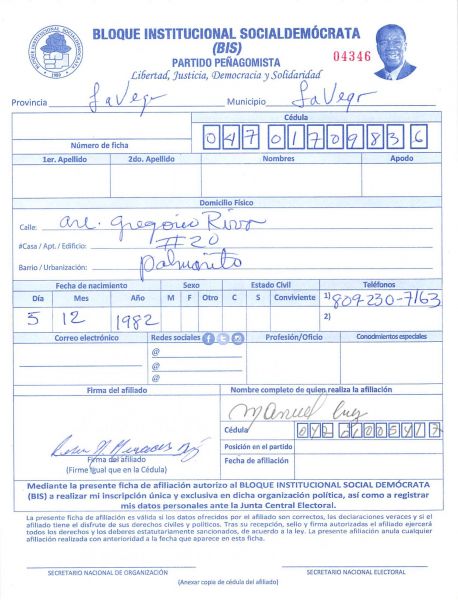 BLOQUE INSTITUCIONAL SOCIALDEMÓCRATA
(BIS)
PARTIDO PEÑAGOMISTA
04346
Libertad, Justicia, Democracia y Solidaridad
Provincia La Vega Municipio La Vega
Cédula
04701709836
Número de ficha
1er. Apellido 2do. Apellido Nombres Apodo
Domicilio Físico
Calle: Gregorio
#Casa / Apt. / Edificio: #20
Barrio / Urbanización: Palmarito
Fecha de nacimiento Sexo Estado Civil Teléfonos
Día Mes Año M F Otro C S Conviviente 1) 809-230-7163
5 12 1982 2)
Correo electrónico Redes sociales Profesión/Oficio Conodmientos especiales
@
@
@
Firma del afiliado Nombre completo de quien realiza la afiliación
Manuel Cruz
Cédula
Posición en el partido
Firma del afiliado
(Firme igual que en la Cédula)
Fecha de afiliación
Mediante la presente ficha de afiliación autorizo al BLOQUE INSTITUCIONAL SOCIAL DEMÓCRATA
(BIS) a realizar mi inscripción única y exclusiva en dicha organización política, así como a registrar
mis datos personales ante la Junta Central Electoral.
La presente ficha de afiliación es válida si los datos ofrecidos por el afiliado son correctos, las declaraciones veraces y si el
afiliado tiene el disfrute de sus derechos civiles y políticos. Tras su recepción, sello y firma autorizadas el afiliado ejercerá
todos los derechos y los deberes estatutariamente sancionados, de acuerdo a la ley. La presente afiliación anula cualquier
afiliación realizada con anterioridad a la fecha que aparece en esta ficha.
SECRETARIO NACIONAL DE ORGANIZACIÓN SECRETARIO NACIONAL ELECTORAL
(Anexar copia de cédula del afiliado)